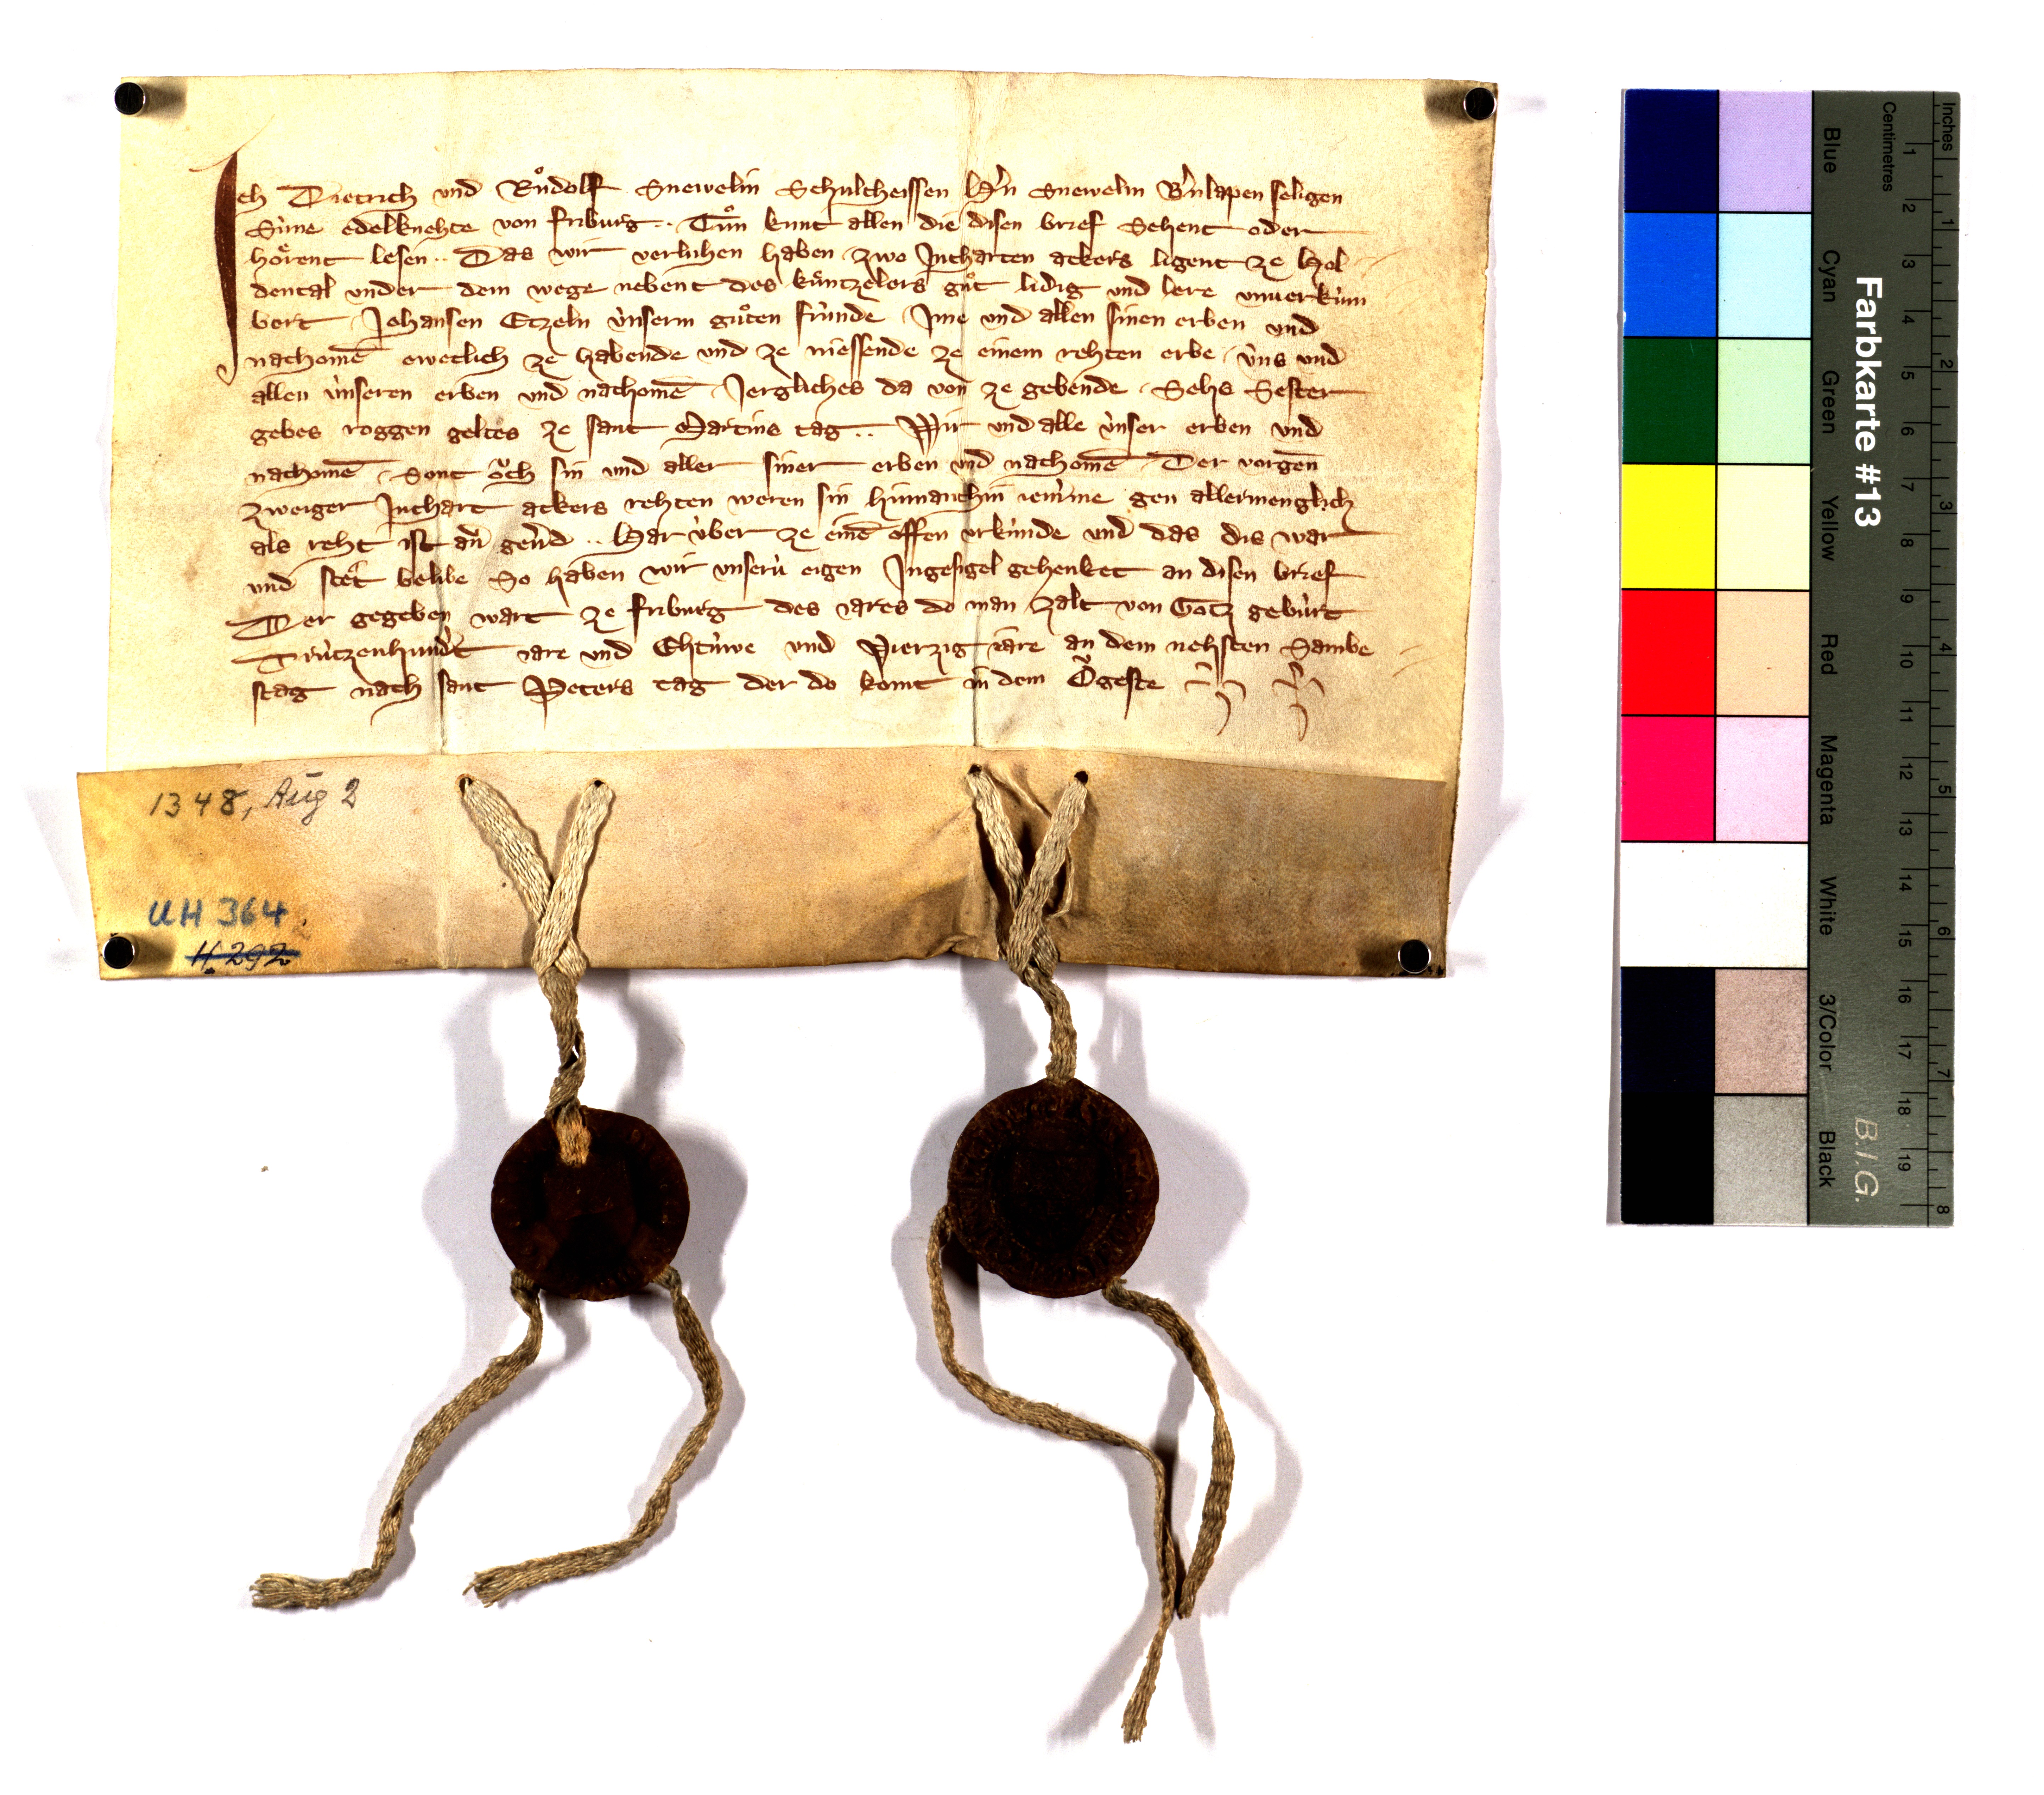 Ich Dietrich und Růdolf Snewelin Schultheissen H'n Snewelin B'nlapen seligen
Sùne edelknehte von friburg .. Tůn kunt allen die disen brief Sehent oder
hoͤrent lesen .. Das wir verluhen haben zwo Jucharten ackers ligent ze Hol
dental under dem wege nebent des kuͤntzelers gůt lidig und lere unuerkùm
bert Johansen Etzeln ùnserm gůten frùnde Jme und allen sinen erben und
nachomē eweclich ze habende und ze niessende ze einem rehten erbe ùns und
allen ùnseren erben und nachomē Jergliches da von ze gebende Sehs Sester
gebes roggen geltes ze sant Martins tag .. Wir und alle ùnser erben und
nachomē Sont oͮch sin und aller siner erben und nachomē Der vorgen̄
zweiger Juchart ackers rehten weren sin hinnanthin iem'me gen allermenglich
als reht ist an gen'd .. Har ùber ze einē offen urkùnde und das dis war
und stet belibe So haben wir unserù eigen Jngesigel gehenket an disen brief
Der gegeben wart ze friburg des iares do man zalt von Gotz gebùrt
Drùtzenhund't iare und Ehtùwe und Vierzig iare an dem nehsten Sambe
stag nach sant Peters tag der do komt in dem Oͮgeste
1348, Aug 2
UH 364.
H. 292
Farbkarte #13
B.I.G.
Blue Cyan Green Yellow Red Magenta White 3/Color Black
Centimetres
1 2 3 4 5 6 7 8 9 10 11 12 13 14 15 16 17 18 19
Inches
1 2 3 4 5 6 7 8